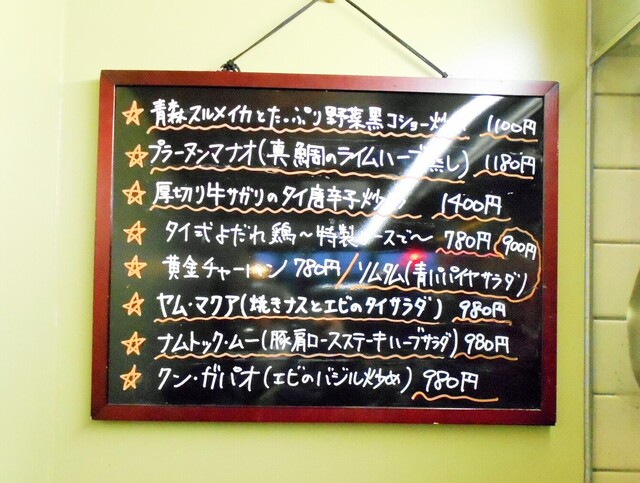 青森スルメイカとたっぷり野菜黒コショー炒 1100円
プラーヌンマナオ(真鯛のライムハーブ蒸し) 1180円
厚切り牛サガリのタイ唐辛子炒 1400円
タイ式よだれ鶏～特製 ースで～ 780円 900円
黄金チャーハン 780円/ソムタム(青パパイヤサラダ)
ヤム・マクア(焼きナスとエビのタイサラダ) 980円
ナムトック・ムー(豚肩ロースステーキハーブサラダ) 980円
クン・ガパオ(エビのバジル炒め) 980円